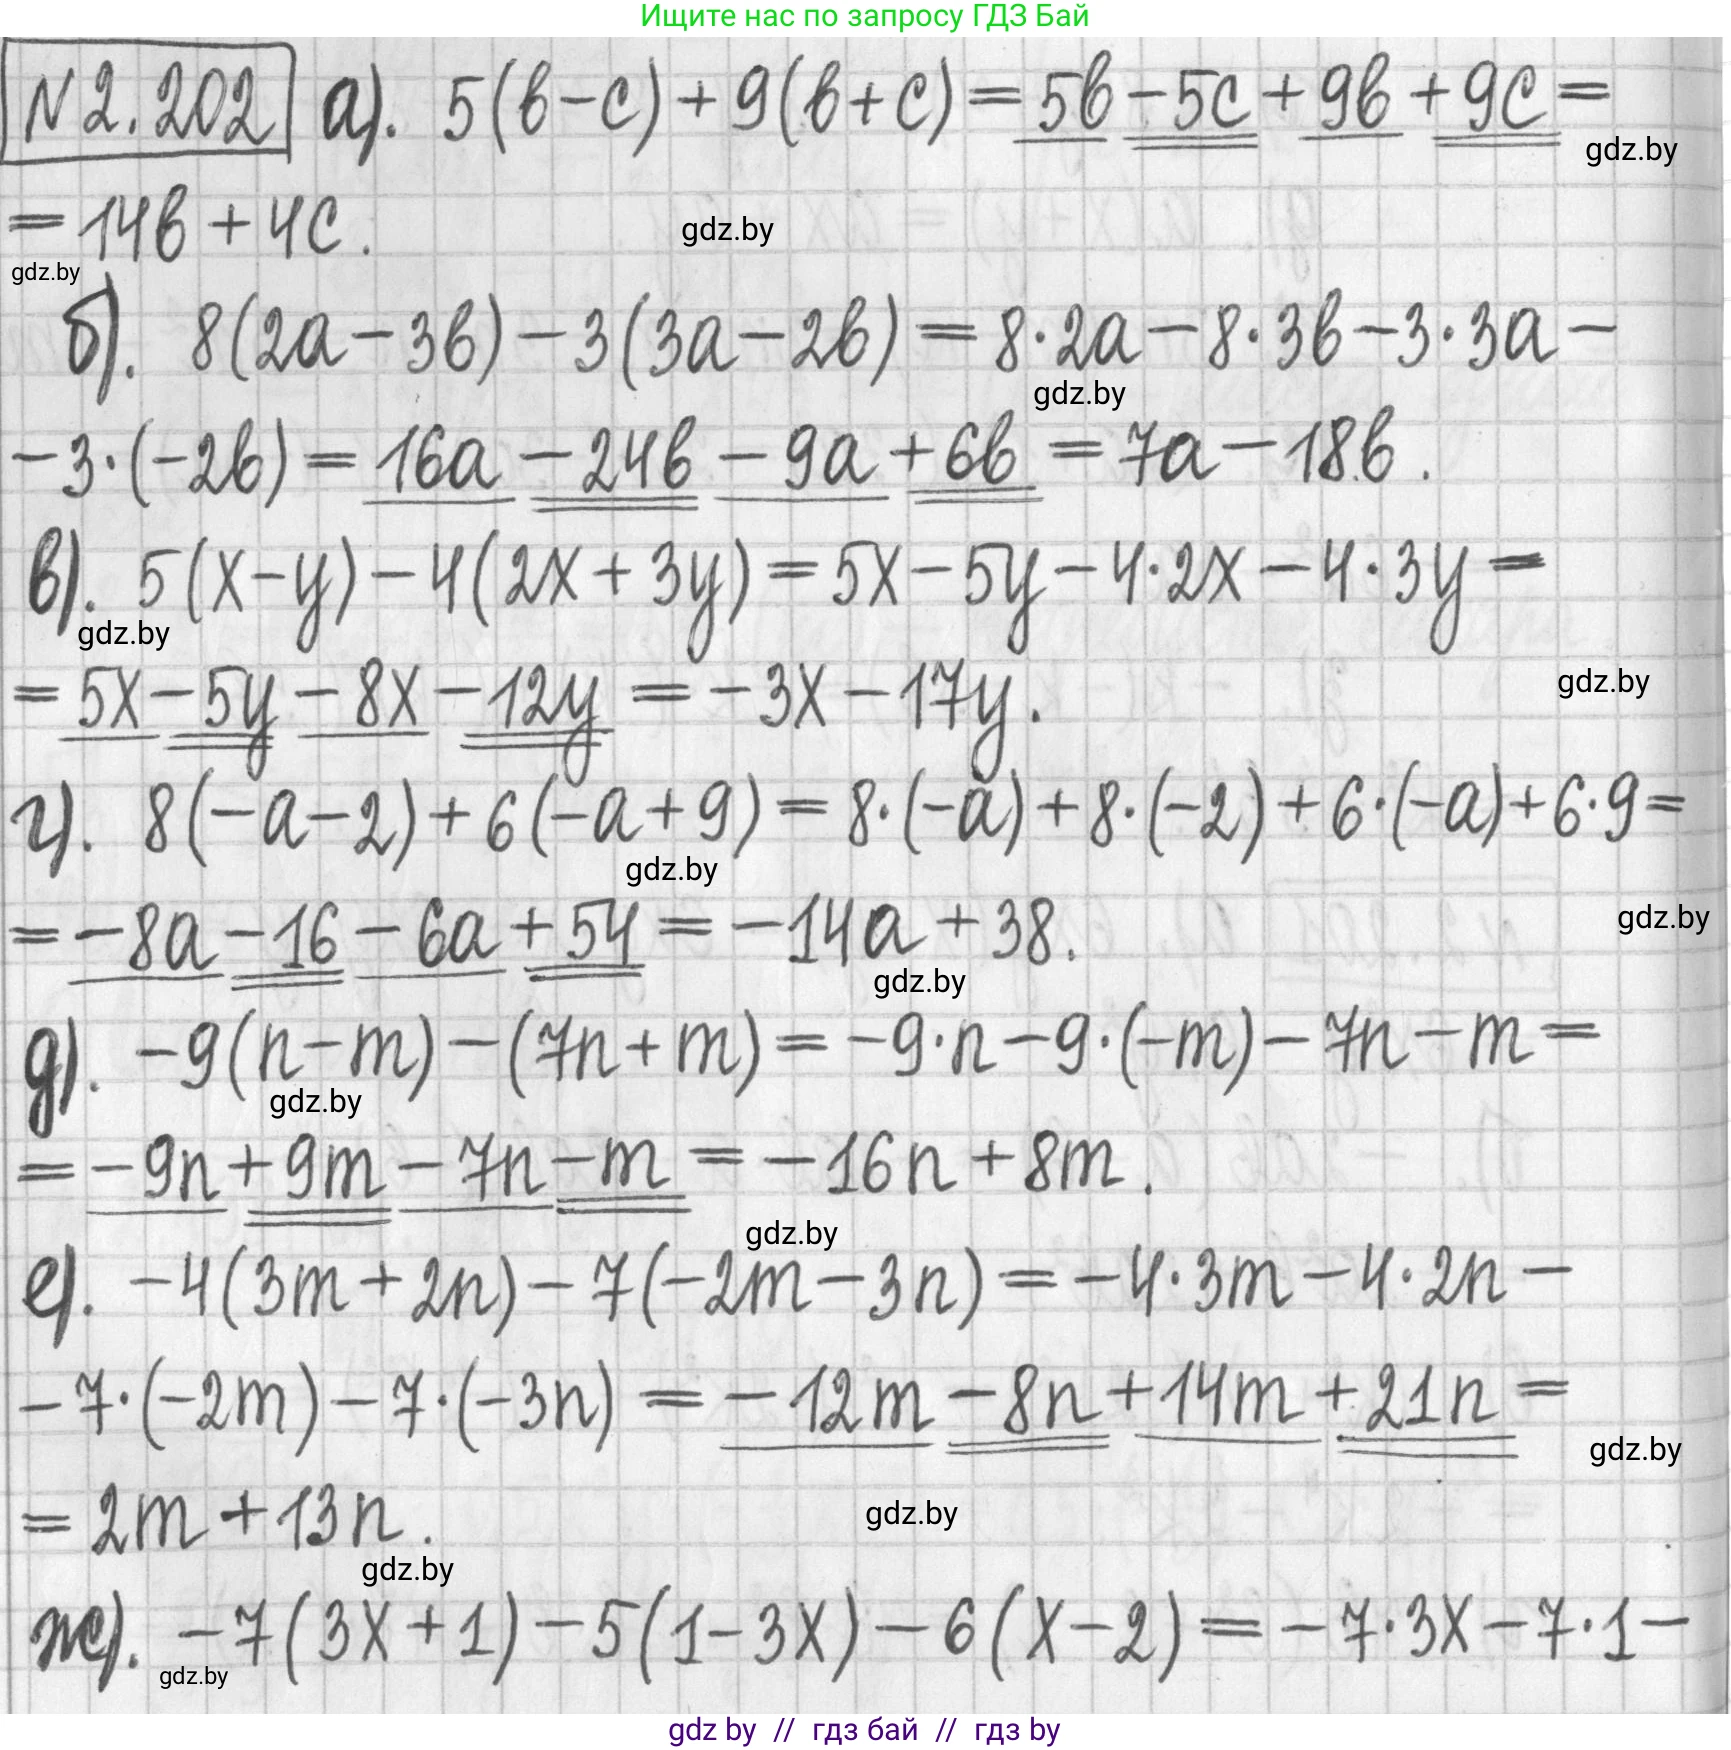 Ищите нас по запросу ГДЗ Бай
N2.202 а). 5(в-с)+9(в+с)=5в-5с+9в+9с=
gdz.by
=14в+4с.
gdz.by
gdz.by
б). 8(2а-3в)-3(3а-2в)=8·2а-8·3в-3·3а-
gdz.by
-3·(-2в)=16а-24в-9а+6в=7а-18в.
в). 5(x-y)-4(2x+3y)=5x-5y-4·2x-4·3y=
gdz.by
=5x-5y-8x-12y=-3x-17y.
gdz.by
г). 8(-а-2)+6(-а+9)=8·(-а)+8·(-2)+6·(-а)+6·9=
gdz.by
=-8а-16-6а+54=-14а+38.
gdz.by
gdz.by
д). -9(n-m)-(7n+m)=-9·n-9·(-m)-7n-m=
gdz.by
=-9n+9m-7n-m=-16n+8m.
gdz.by
е). -4(3m+2n)-7(-2m-3n)=-4·3m-4·2n-
-7·(-2m)-7·(-3n)=-12m-8n+14m+21n=
gdz.by
=2m+13n.
gdz.by
gdz.by
ж). -7(3x+1)-5(1-3x)-6(x-2)=-7·3x-7·1-
gdz.by
gdz by // гдз бай // гдз by